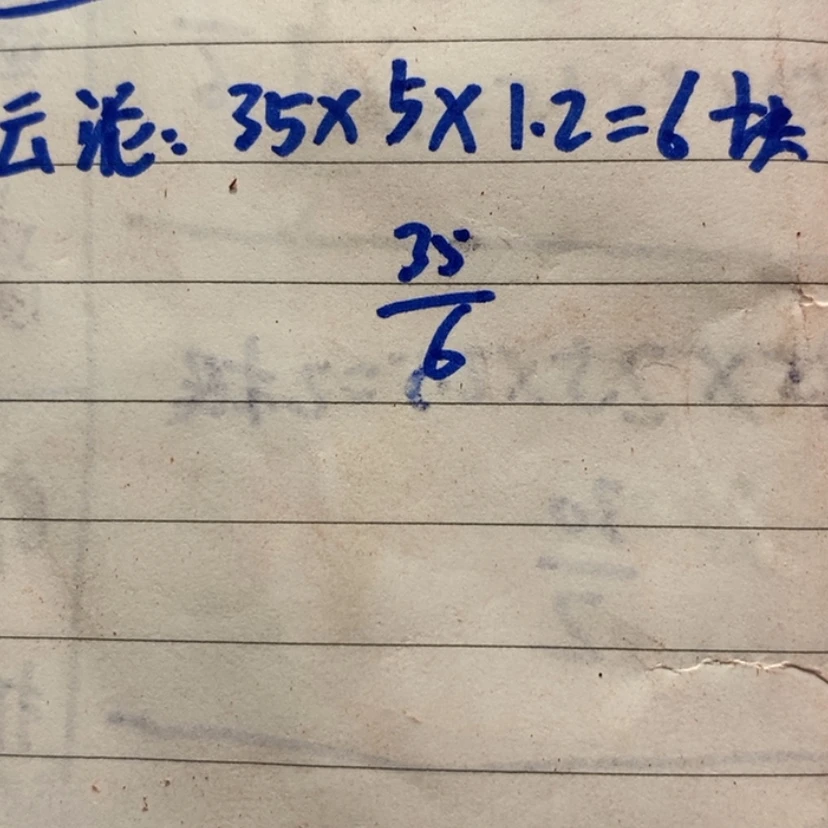 云泥: 35×5×1.2=6块
35
6